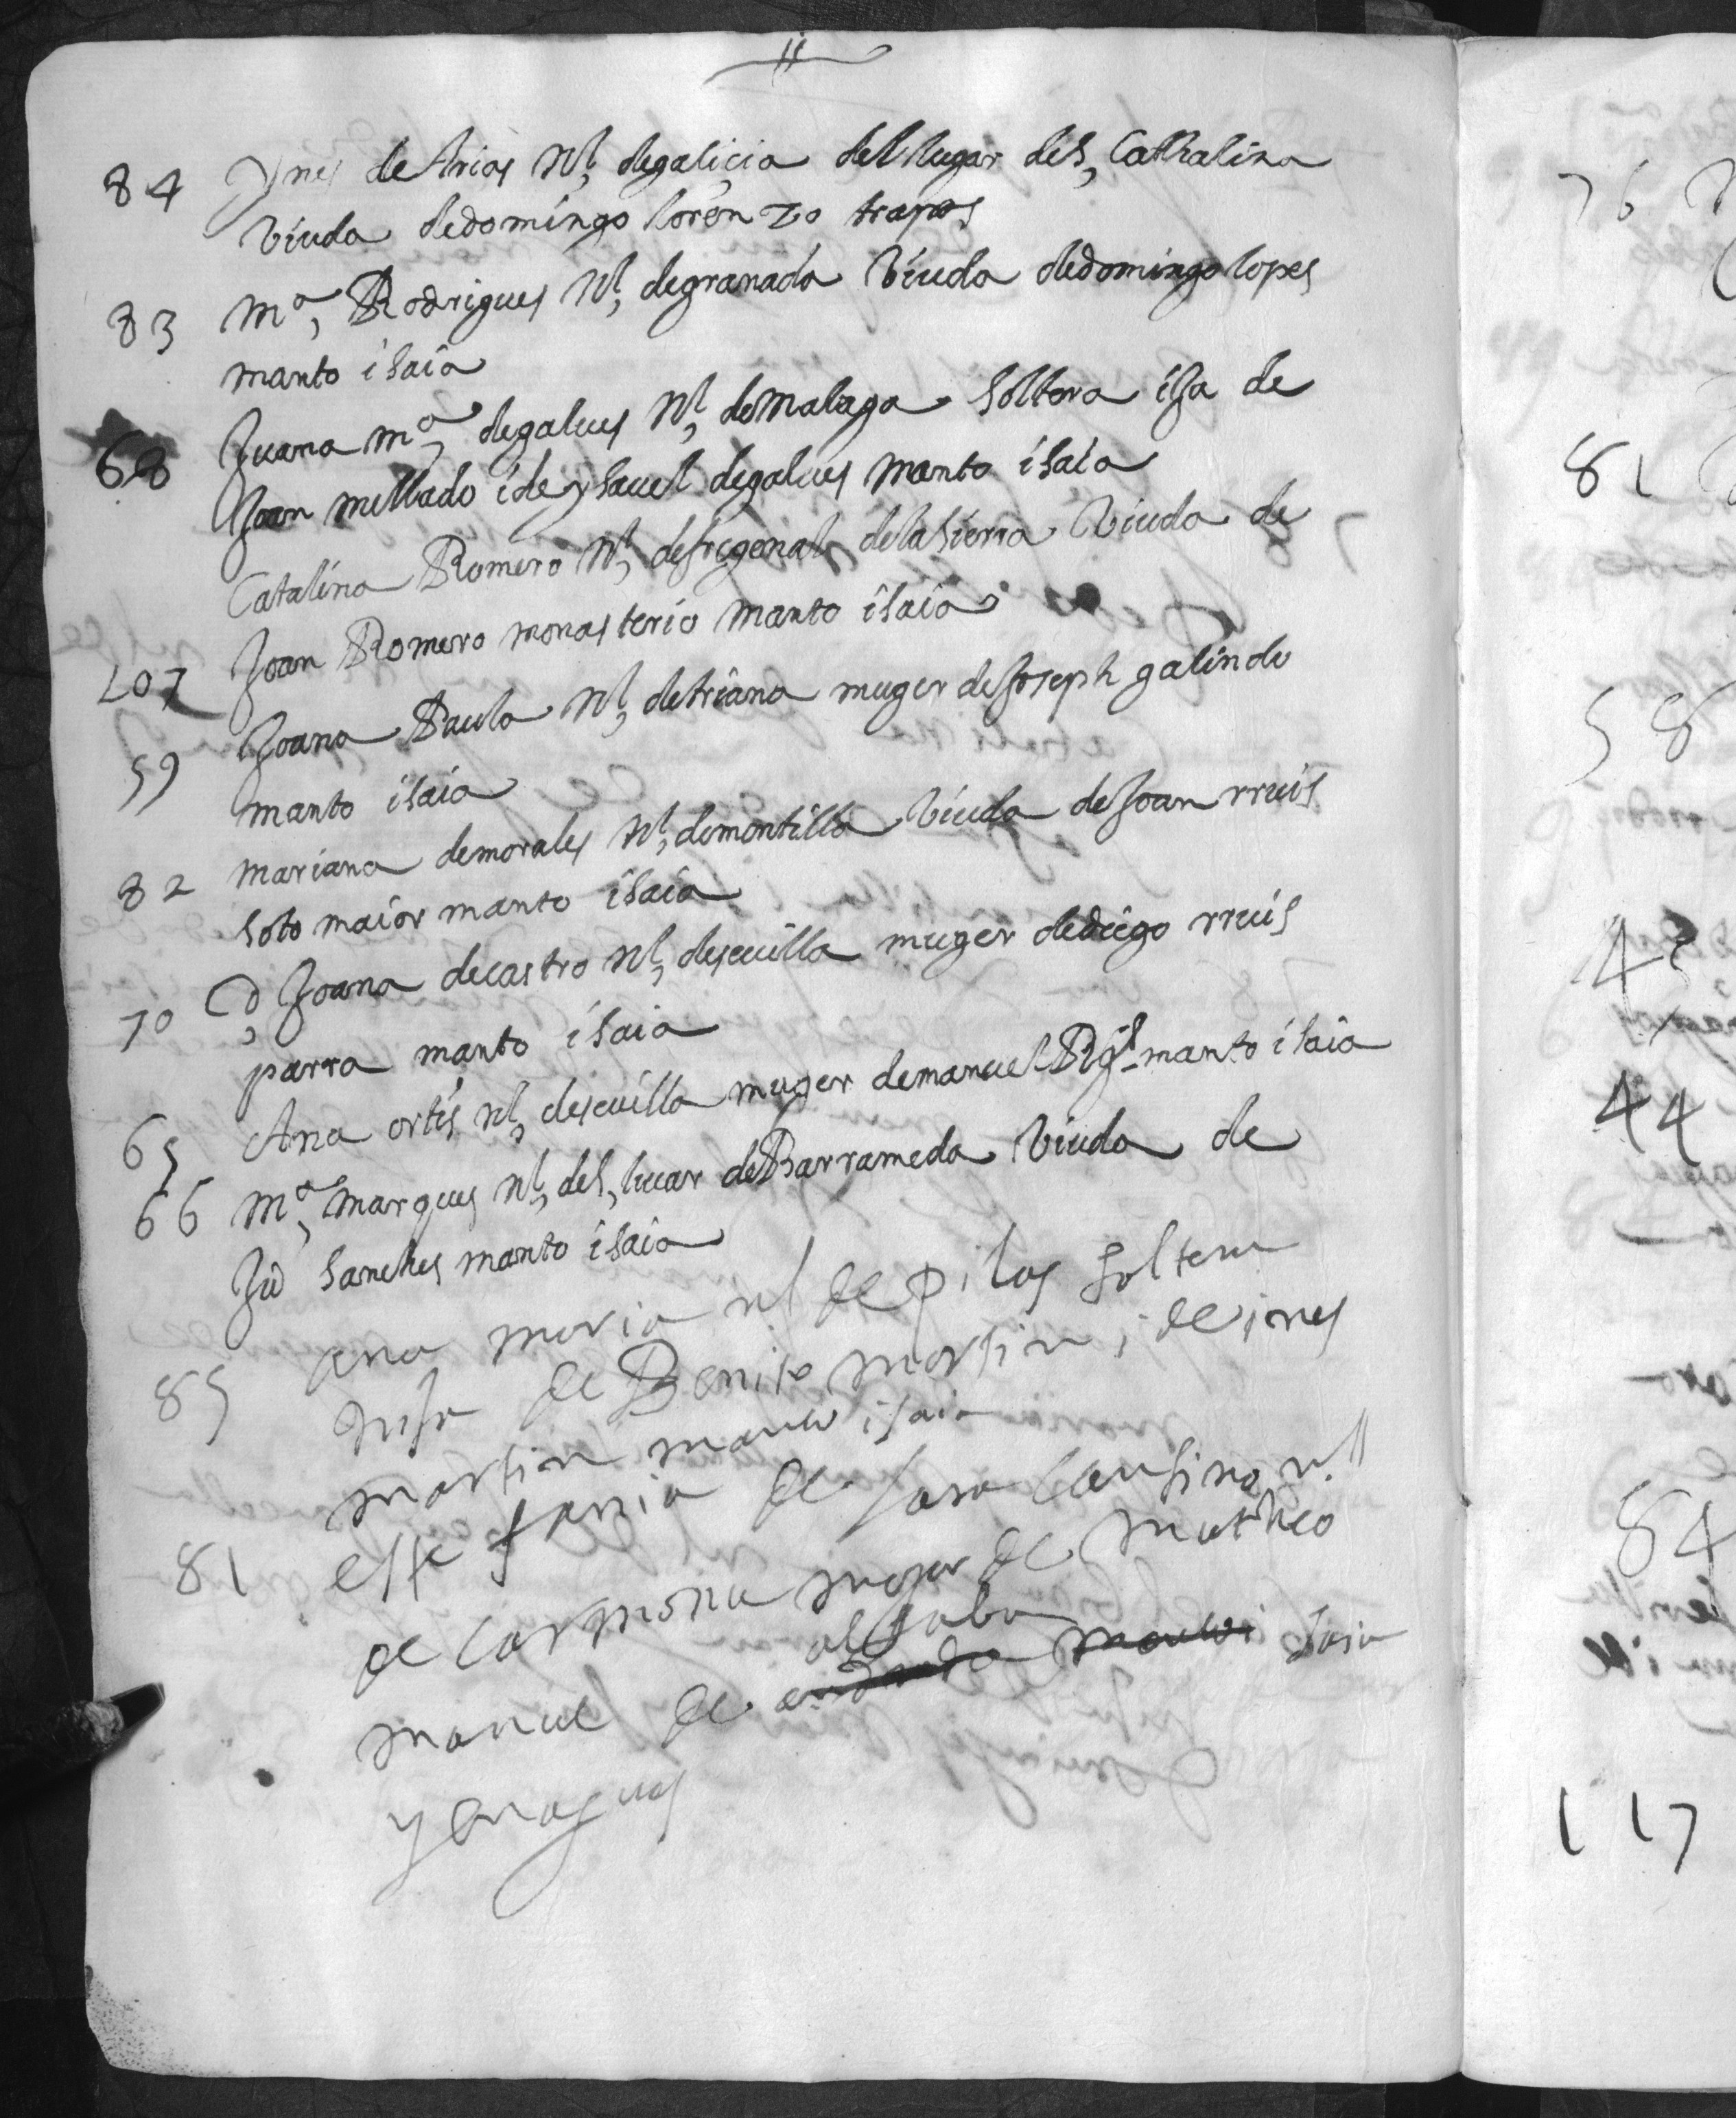 84 Ynes de Arias Nl, de galicia del lugar de S, Cathalina
Viuda de domingo loren zo trapos
83 Mª, Rodrigues Nl, de granada Viuda de domingo lopes
manto i saia
68 Juana mª, de galues Nl, de Malaga soltera ija de
Joan mellado i de ysauel de galues manto i saia
Catalina Romero Nl, de fregenal de la sierra Viuda de
107 Joan Romero monasterio manto i saia
59 Joana Paula Nl, de triana muger de Joseph galindo
manto i saia
82 mariana de morales Nl, de montilla Viuda de Joan rruis
soto maior manto i saia
70 D, Joana de castro Nl, de seuilla muger de diego rruis
parra manto i saia
65 Ana ortis Nl, de seuilla muger de manuel Rgs manto i saia
66 Mª, marques Nl, de S, lucar de Barrameda Viuda de
Ju sanches manto i saia
85 ana maria nl de pilas soltera
hija de Benito martin i de ines
martin manto i saia
81 estefania de lara cansino nl
de carmona mujer de matheo
manuel de
saia
y enaguas
76
81
58
43
44
84
117